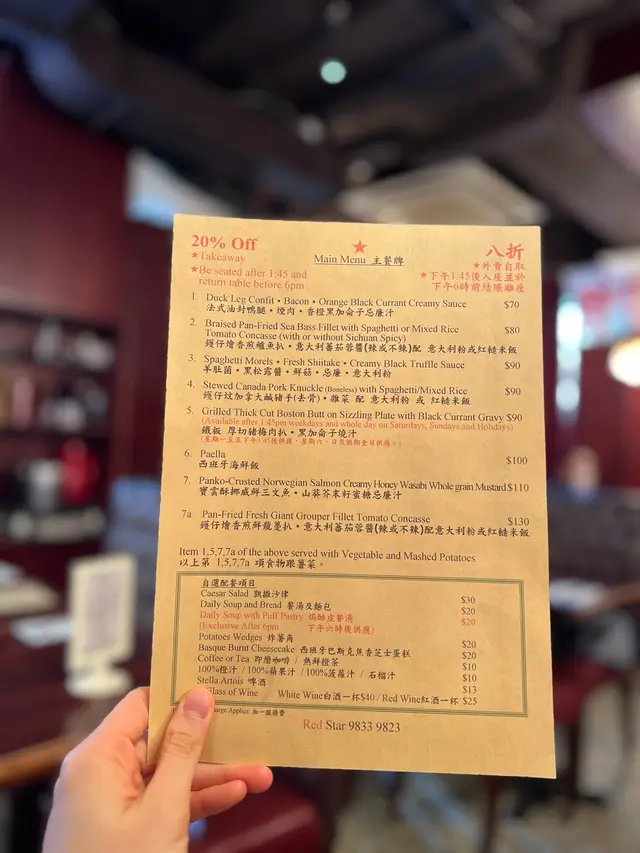 20% Off
★Takeaway
★Be seated after 1:45 and
return table before 6pm
★
Main Menu 主餐牌
八折
★外賣自取
★下午1.45後入座並於
下午6時前結賬離座
1. Duck Leg Confit • Bacon • Orange Black Currant Creamy Sauce $70
法式油封鴨腿 • 煙肉 • 香橙黑加侖子忌廉汁
2. Braised Pan-Fried Sea Bass Fillet with Spaghetti or Mixed Rice $80
Tomato Concasse (with or without Sichuan Spicy)
鑊仔燴香煎鱸魚扒 • 意大利蕃茄蓉醬(辣或不辣)配 意大利粉或紅糙米飯
3. Spaghetti Morels • Fresh Shiitake • Creamy Black Truffle Sauce $90
羊肚菌 • 黑松露醬 • 鮮菇 • 忌廉 • 意大利粉
4. Stewed Canada Pork Knuckle (Boneless) with Spaghetti/Mixed Rice $90
鑊仔炆加拿大鹹豬手(去骨) • 雜菜 配 意大利粉 或 紅糙米飯
5. Grilled Thick Cut Boston Butt on Sizzling Plate with Black Currant Gravy $90
(Available after 1:45pm weekdays and whole day on Saturdays, Sundays and Holidays)
鐵板 厚切豬梅肉扒 • 黑加侖子燒汁
(星期一至五下午1:45後供應，星期六、日及假期全日供應。)
6. Paella $100
西班牙海鮮飯
7. Panko-Crusted Norwegian Salmon Creamy Honey Wasabi Whole grain Mustard $110
寶雲酥挪威鮮三文魚 • 山葵芥末籽蜜糖忌廉汁
7a Pan-Fried Fresh Giant Grouper Fillet Tomato Concasse $130
鑊仔燴香煎鮮龍躉扒 • 意大利蕃茄蓉醬(辣或不辣)配意大利粉或紅糙米飯
Item 1,5,7,7a of the above served with Vegetable and Mashed Potatoes
以上第 1,5,7,7a 項食物跟薯菜。
自選配餐項目
Caesar Salad 凱撒沙律 $30
Daily Soup and Bread 餐湯及麵包 $20
Daily Soup with Puff Pastry 焗酥皮餐湯 $20
(Exclusive After 6pm 下午六時後供應)
Potatoes Wedges 炸薯角 $20
Basque Burnt Cheesecake 西班牙巴斯克焦香芝士蛋糕 $20
Coffee or Tea 即磨咖啡 / 熱鮮橙茶 $10
100%橙汁 / 100%蘋果汁 / 100%菠蘿汁 / 石榴汁 $10
Stella Artois 啤酒 $13
Glass of Wine White Wine白酒一杯$40 / Red Wine紅酒一杯 $25
Applies 加一服務費
Red Star 9833 9823